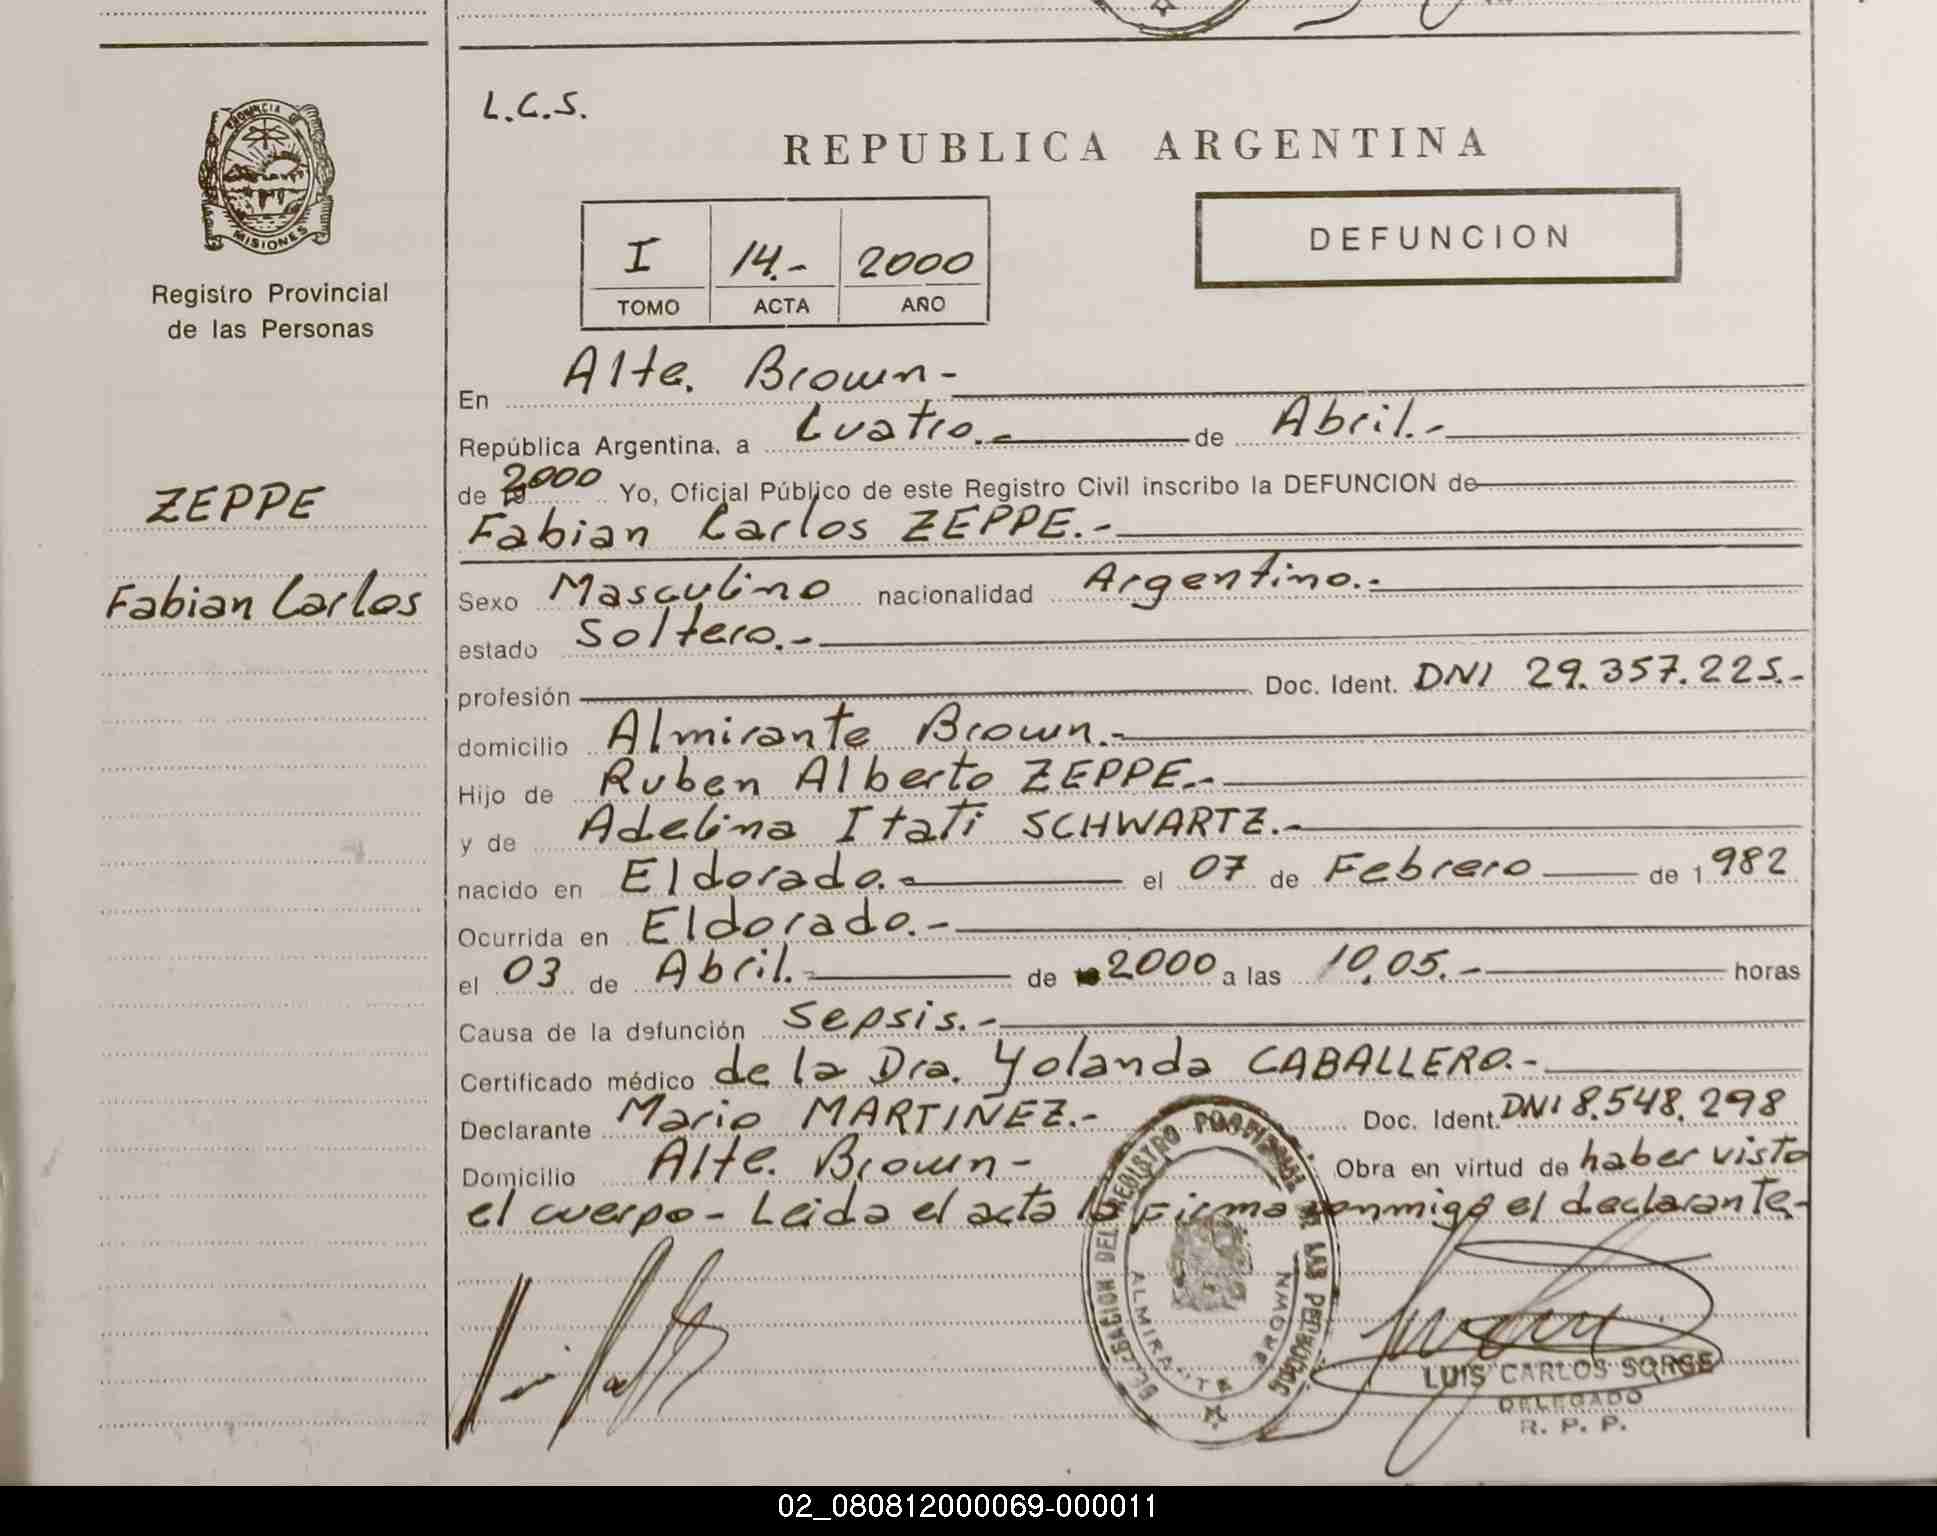 L.C.S.
REPUBLICA ARGENTINA
PROVINCIA
MISIONES
Registro Provincial
de las Personas
I 14.- 2000
TOMO ACTA AÑO
DEFUNCION
ZEPPE
Fabian Carlos
En Alte. Brown-
República Argentina, a Cuatro.- de Abril.-
de 19 2000 Yo, Oficial Público de este Registro Civil inscribo la DEFUNCION de
Fabian Carlos ZEPPE.-
Sexo Masculino nacionalidad Argentino.-
estado Soltero.-
profesión Doc. Ident. DNI 29.357.225.-
domicilio Almirante Brown.-
Hijo de Ruben Alberto ZEPPE.-
y de Adelina Itatí SCHWARTZ.-
nacido en Eldorado.- el 07 de Febrero de 1982
Ocurrida en Eldorado.-
el 03 de Abril.- de 2000 a las 10,05.- horas
Causa de la defunción Sepsis.-
Certificado médico de la Dra. Yolanda CABALLERO.-
Declarante Mario MARTIÑEZ.- Doc. Ident. DNI 8.548.298
Domicilio Alte. Brown- Obra en virtud de haber visto
el cuerpo- Leida el acta la Firma conmigo el declarante-
DELEGACION DEL REGISTRO PROVINCIAL DE LAS PERSONAS
ALMIRANTE BROWN
LUIS CARLOS SORGE
DELEGADO
R. P. P.
02_080812000069-000011